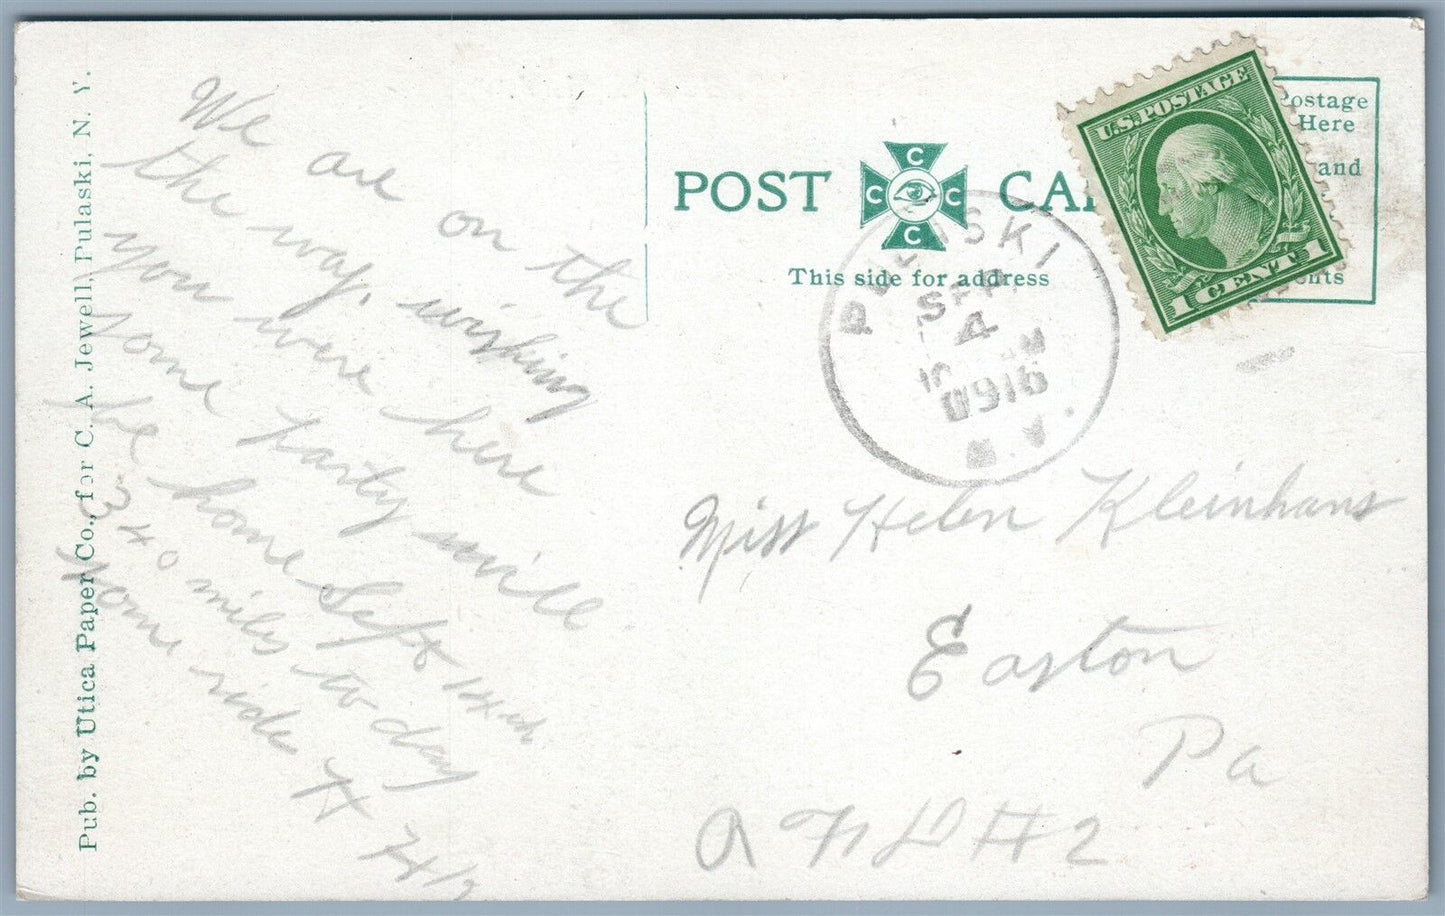 We are on the
the way, wishing
you were here
some party will
be home Sept
340 miles to day
some ride H
Pub. by Utica Paper Co., for C. A. Jewell, Pulaski, N. Y.
POST CA
C C C C
This side for address
PULASKI
SEP
4
1916
N.Y.
U.S. POSTAGE
1 CENT 1
Postage
Here
and
nts
Miss Helen Kleinhans
Easton
Pa